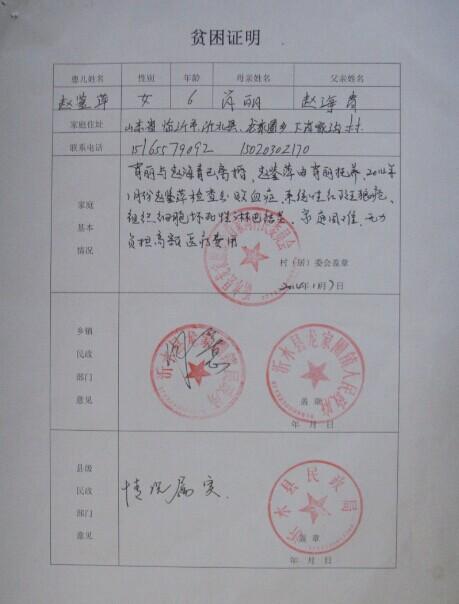 贫困证明
患儿姓名 性别 年龄 母亲姓名 父亲姓名
赵鉴萍 女 6 肖丽 赵海青
家庭住址 山东省临沂市沂水县龙家圈乡下肖家沟村
联系电话 15165579092 15020302170
家庭基本情况
肖丽与赵海青已离婚,赵鉴萍由肖丽抚养,2014年
1月份赵鉴萍检查出败血症,系统性红斑狼疮,
组织细胞坏死性淋巴结炎,家庭困难,无力
负担高额医疗费用
村(居)委会盖章
2014年1月7日
乡镇民政部门意见
同意
沂水县龙家圈镇人民政府
盖章
年 月 日
县级民政部门意见
情况属实.
沂水县民政局
盖章
年 月 日